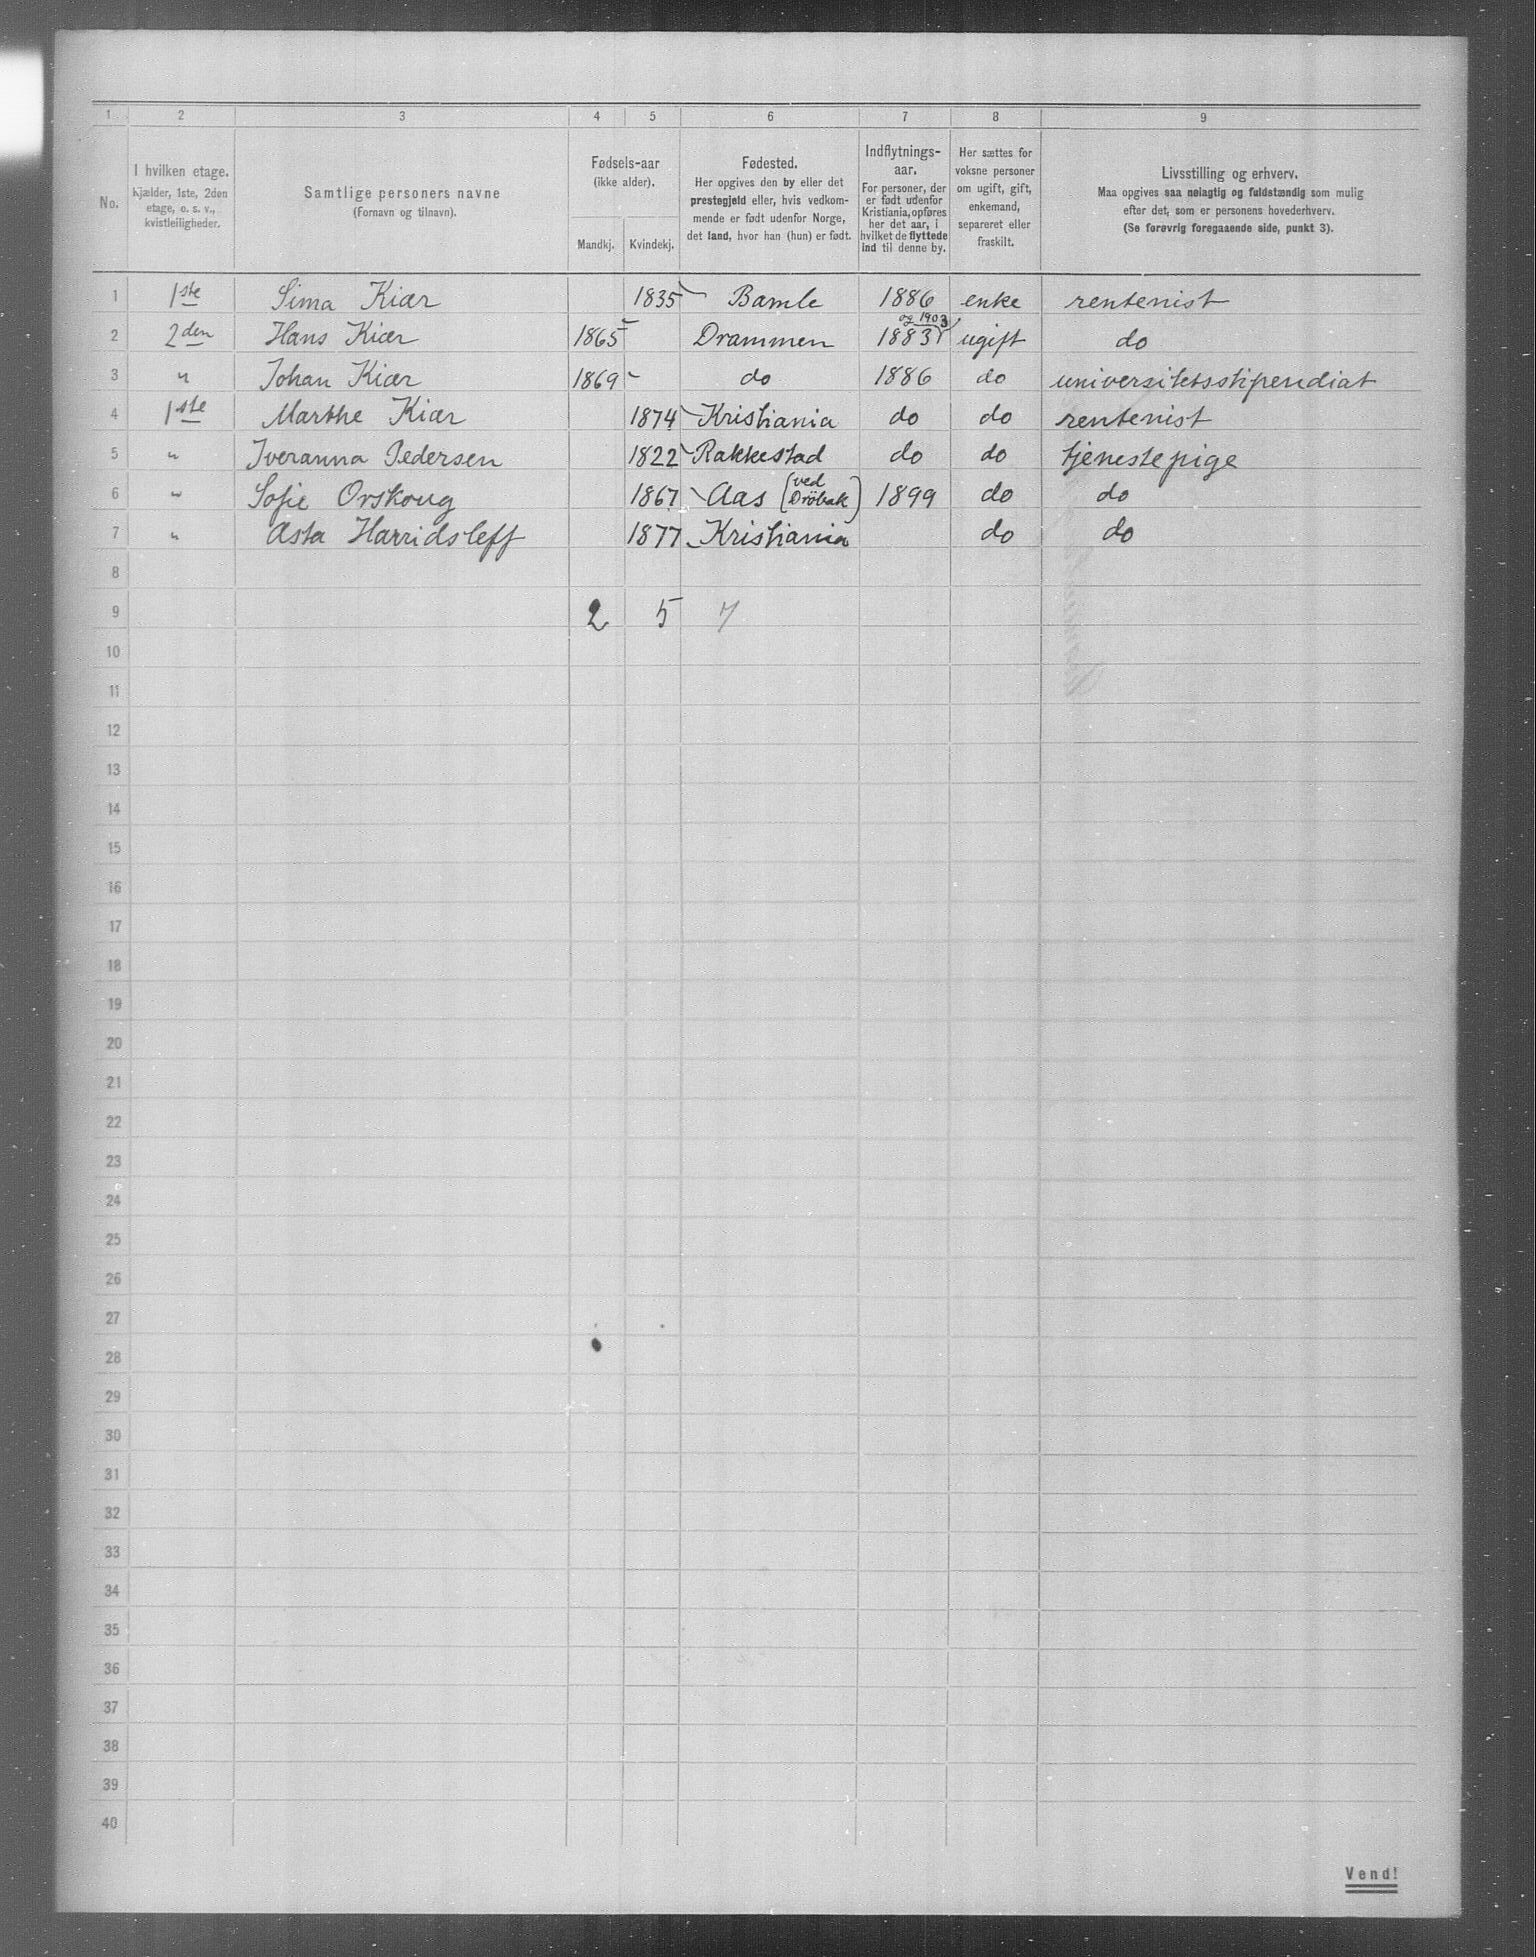 1 2 3 4 5 6 7 8 9
No.
I hvilken etage.
Kjælder, 1ste, 2den
etage, o. s. v.,
kvistleiligheder.
Samtlige personers navne
(Fornavn og tilnavn).
Fødsels-aar
(ikke alder).
Mandkj. Kvindekj.
Fødested.
Her opgives den by eller det
prestegjeld eller, hvis vedkom-
mende er født udenfor Norge,
det land, hvor han (hun) er født.
Indflytnings-
aar.
For personer, der
er født udenfor
Kristiania, opføres
her det aar, i
hvilket de flyttede
ind til denne by.
Her sættes for
voksne personer
om ugift, gift,
enkemand,
separeret eller
fraskilt.
Livsstilling og erhverv.
Maa opgives saa nøiagtig og fuldstændig som mulig
efter det, som er personens hovederhverv.
(Se forøvrig foregaaende side, punkt 3).
1 1ste Sima Kiær 1835 Bamle 1886 enke rentenist
og 1903
2 2den Hans Kiær 1865 Drammen 1883 ugift do
3 " Johan Kiær 1869 do 1886 do universitetsstipendiat
4 1ste Marthe Kiær 1874 Kristiania do do rentenist
5 " Iveranna Pedersen 1822 Rakkestad do do tjenestepige
6 " Sofie Orskoug 1867 Aas (ved Dröbak) 1899 do do
7 " Asta Harridsleff 1877 Kristiania do do
8
9 2 5 7
10
11
12
13
14
15
16
17
18
19
20
21
22
23
24
25
26
27
28
29
30
31
32
33
34
35
36
37
38
39
40
Vend!